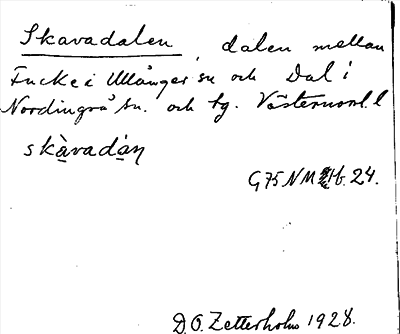 Skavadalen, dalen mellan
Fucke i Ullånger sn och Dal i
Nordingrå sn. och tg. Västernorrl. l
skàvadàṇ
G75 NM b. 24.
D.O. Zetterholm 1928.